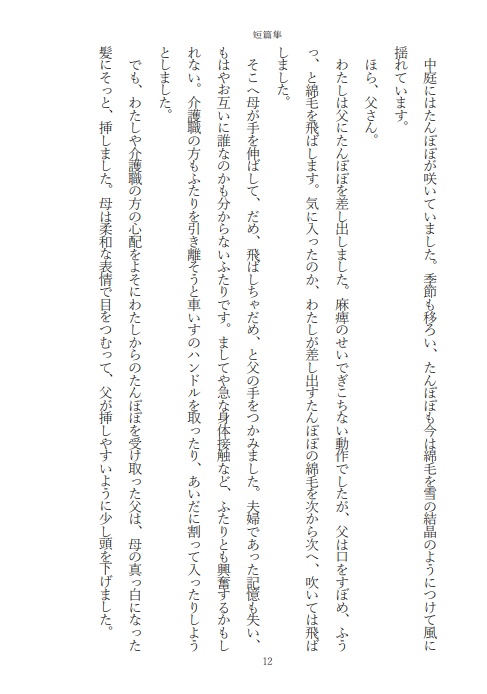 短篇集
　中庭にはたんぽぽが咲いていました。季節も移ろい、たんぽぽも今は綿毛を雪の結晶のようにつけて風に
揺れています。
　ほら、父さん。
　わたしは父にたんぽぽを差し出しました。麻痺のせいでぎこちない動作でしたが、父は口をすぼめ、ふう
っ、と綿毛を飛ばします。気に入ったのか、わたしが差し出すたんぽぽの綿毛を次から次へ、吹いては飛ば
しました。
　そこへ母が手を伸ばして、だめ、飛ばしちゃだめ、と父の手をつかみました。夫婦であった記憶も失い、
もはやお互いに誰なのかも分からないふたりです。ましてや急な身体接触など、ふたりとも興奮するかもし
れない。介護職の方もふたりを引き離そうと車いすのハンドルを取ったり、あいだに割って入ったりしよう
としました。
　でも、わたしや介護職の方の心配をよそにわたしからのたんぽぽを受け取った父は、母の真っ白になった
髪にそっと、挿しました。母は柔和な表情で目をつむって、父が挿しやすいように少し頭を下げました。
12